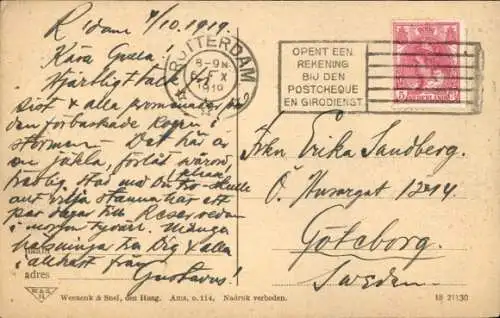 R'dam 4/10.1919.
Kära Gulla!
Hjärtligt tack för
sist & alla promenader
den förbaskade Kogen i
stormen. Det här är
en jäkla, förlåt
Had må Du tro skulle
att vilja stanna här ett
par dagar till.
i morgon tyvärr. Många
hälsningar till Dig & alla
i allhast från
Gustavus!
adres
ROTTERDAM
8-9N
4 X
1919
OPENT EEN
REKENING
BIJ DEN
POSTCHEQUE
EN GIRODIENST
5
NEDERLAND
Frkn Erika Sandberg.
Ö. Husargat 12-14.
Göteborg.
Sweden.
Weenenk & Snel, den Haag. Ams, o. 114, Nadruk verboden.
18 21130